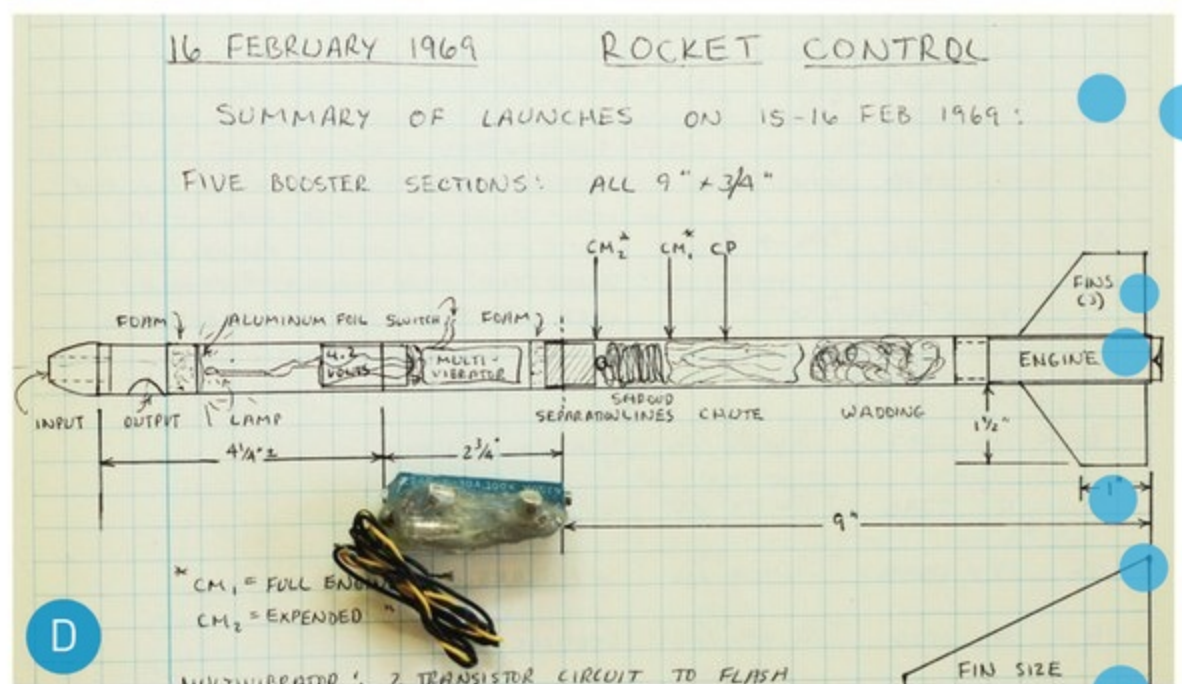 16 FEBRUARY 1969 ROCKET CONTROL
SUMMARY OF LAUNCHES ON 15-16 FEB 1969:
FIVE BOOSTER SECTIONS: ALL 9" x 3/4"
CM₂* CM₁* CP
FINS
(3)
FOAM ALUMINUM FOIL SWITCH FOAM
4.2
VOLTS
MULTI-
VIBRATOR
ENGINE
INPUT OUTPUT LAMP
SEPARATION
SHROUD
LINES
CHUTE WADDING
1 1/2"
4 1/4" ± 2 3/4"
1"
9"
* CM₁ = FULL
CM₂ = EXPENDED "
D
MULTIVIBRATOR: 2 TRANSISTOR CIRCUIT TO FLASH
FIN SIZE